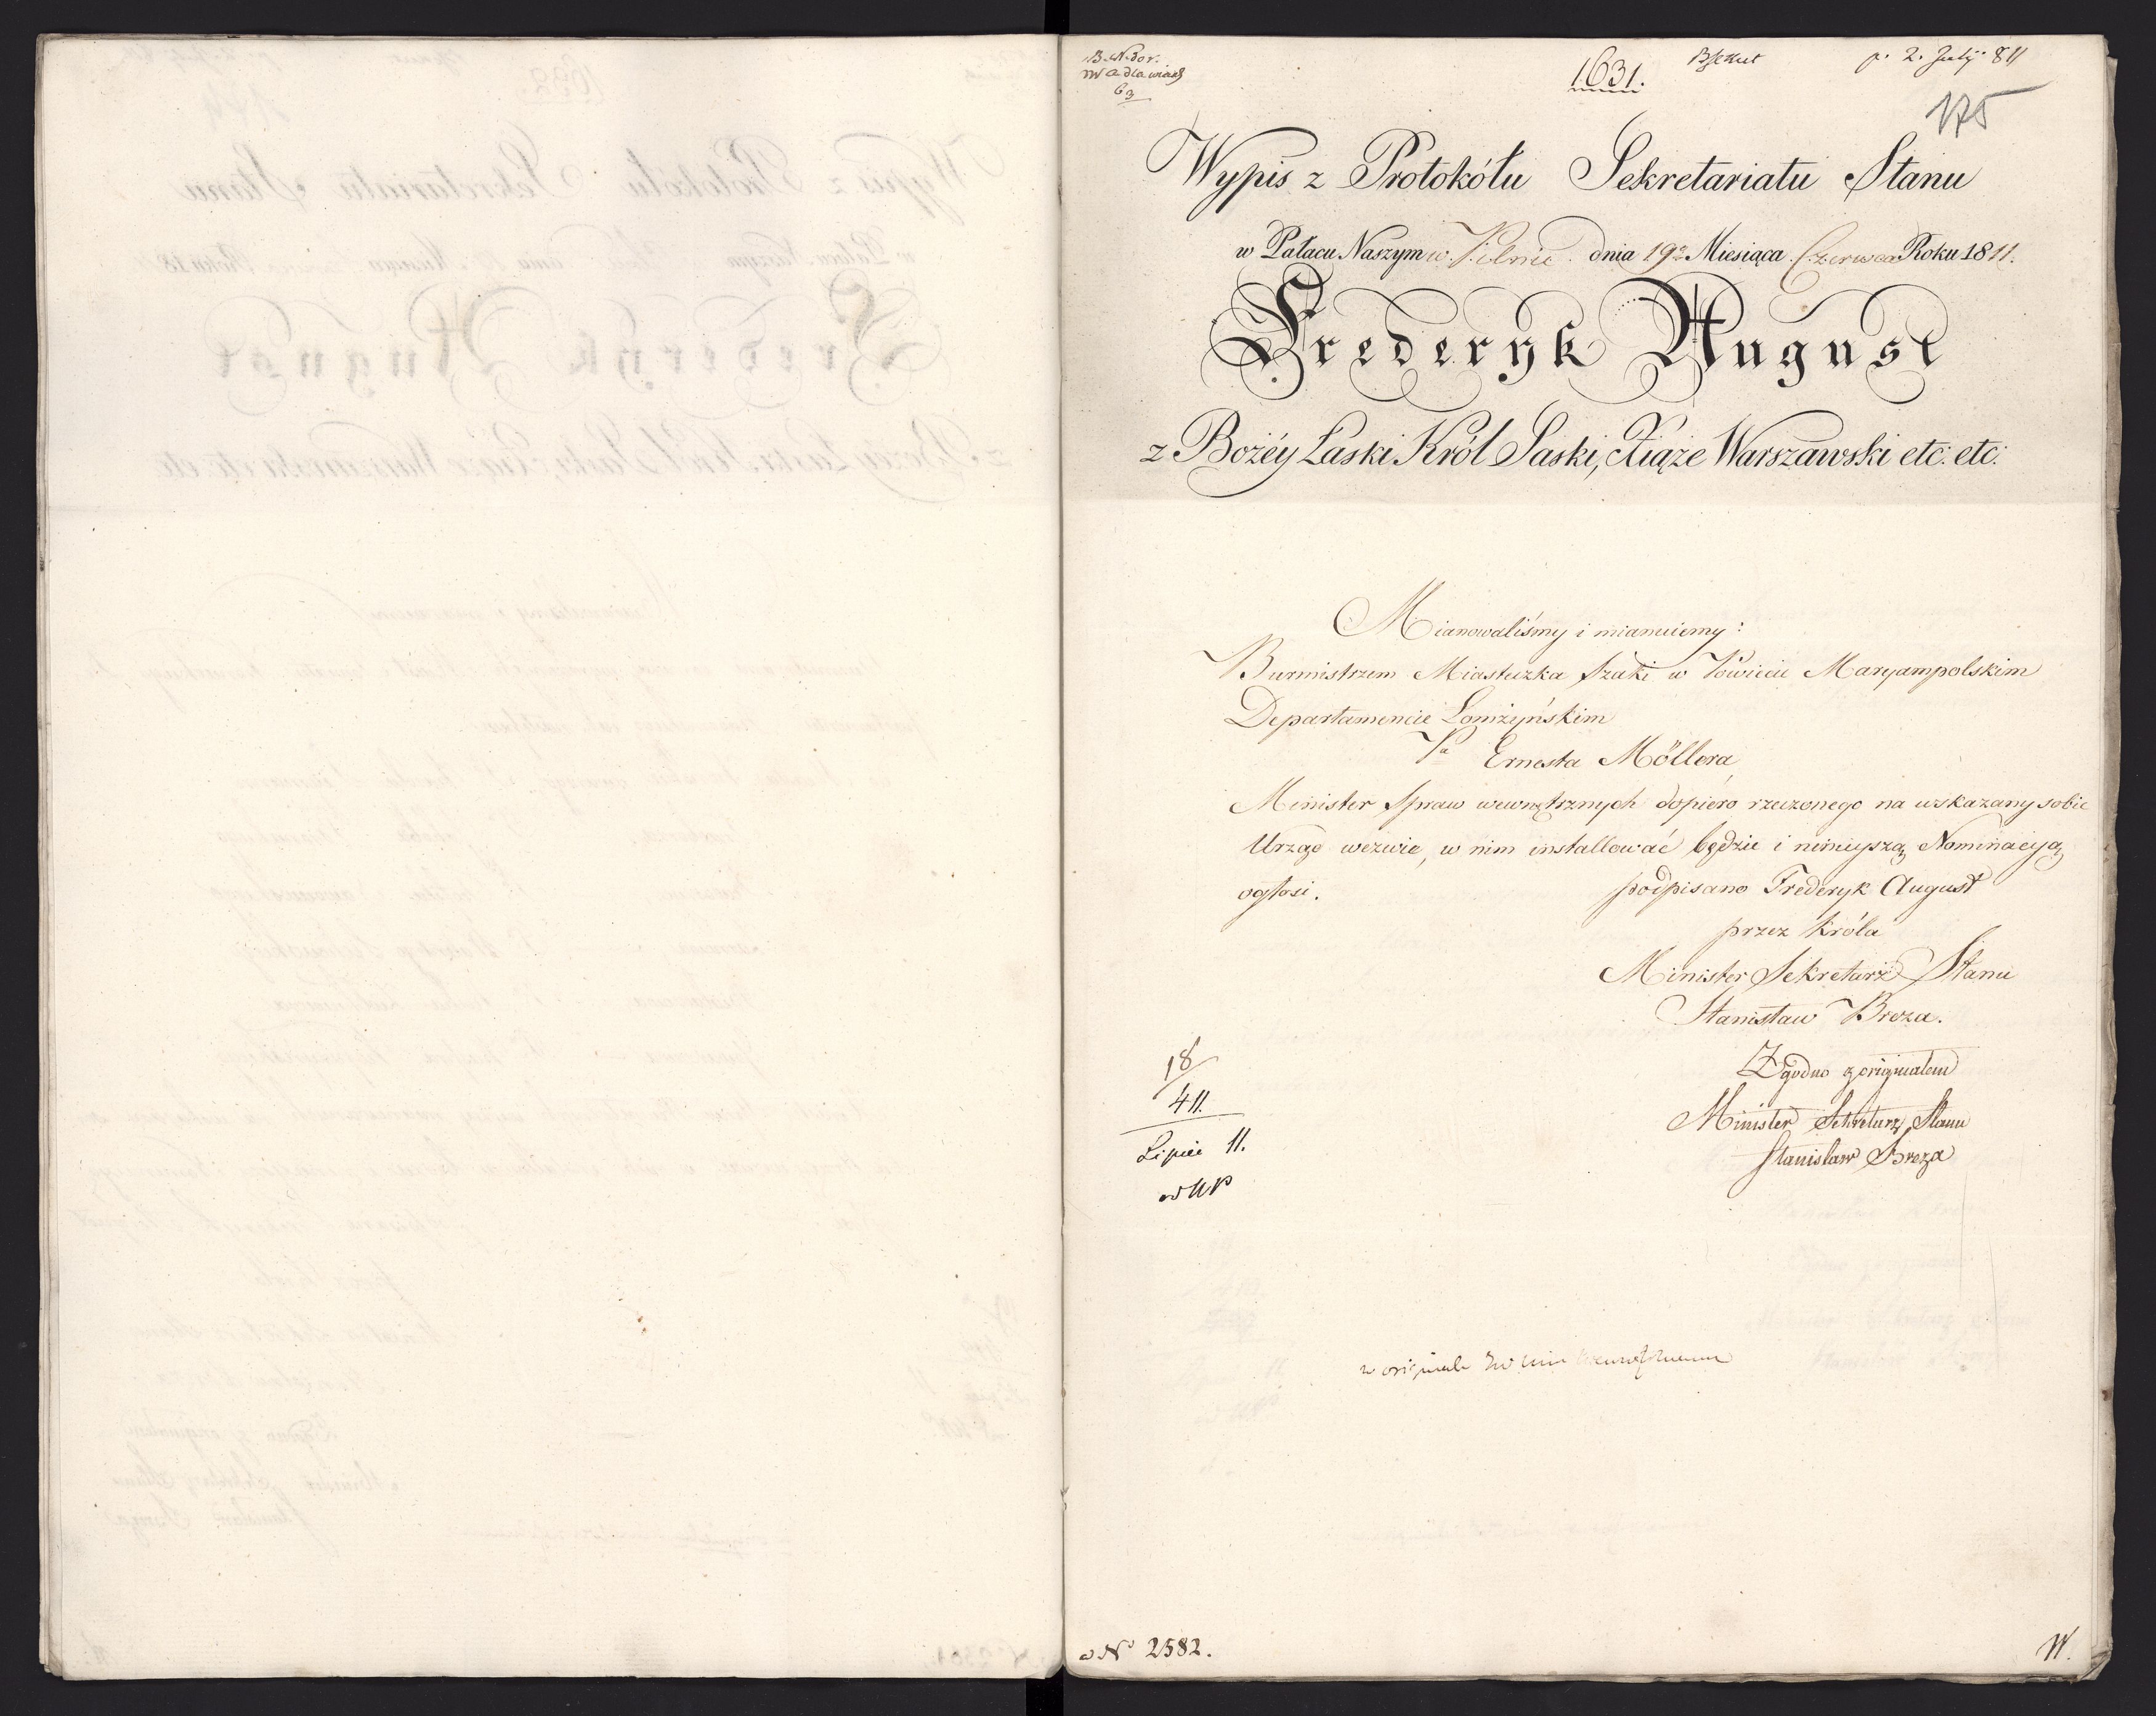 1631.
p. 2. July 811
175
Wypis z Protokółu Sekretariatu Stanu
w Pałacu Naszym w Pilnic dnia 19º Miesiąca Czerwca Roku 1811.
Frederyk August
z Bożéy Łaski Król Saski, Xiąże Warszawski etc: etc:
Mianowaliśmy i mianuiemy:
Burmistrzem Miasteczka Szaki w Powiecie Maryampolskim
Departamencie Łomżyńskim
Pa Ernesta Möllera
Minister Spraw wewnętrznych dopiéro rzeczonego na wskazany sobie
Urząd wezwie, w nim installować będzie i ninieyszą Nominacyą
ogłosi.
podpisano Frederyk August
przez Króla
Minister Sekretarz Stanu
Stanisław Breza.
Zgodno z originalem
Minister Sekretarz Stanu
Stanisław Breza
18
411.
Lipiec 11.
w originale
No 2582.
W.